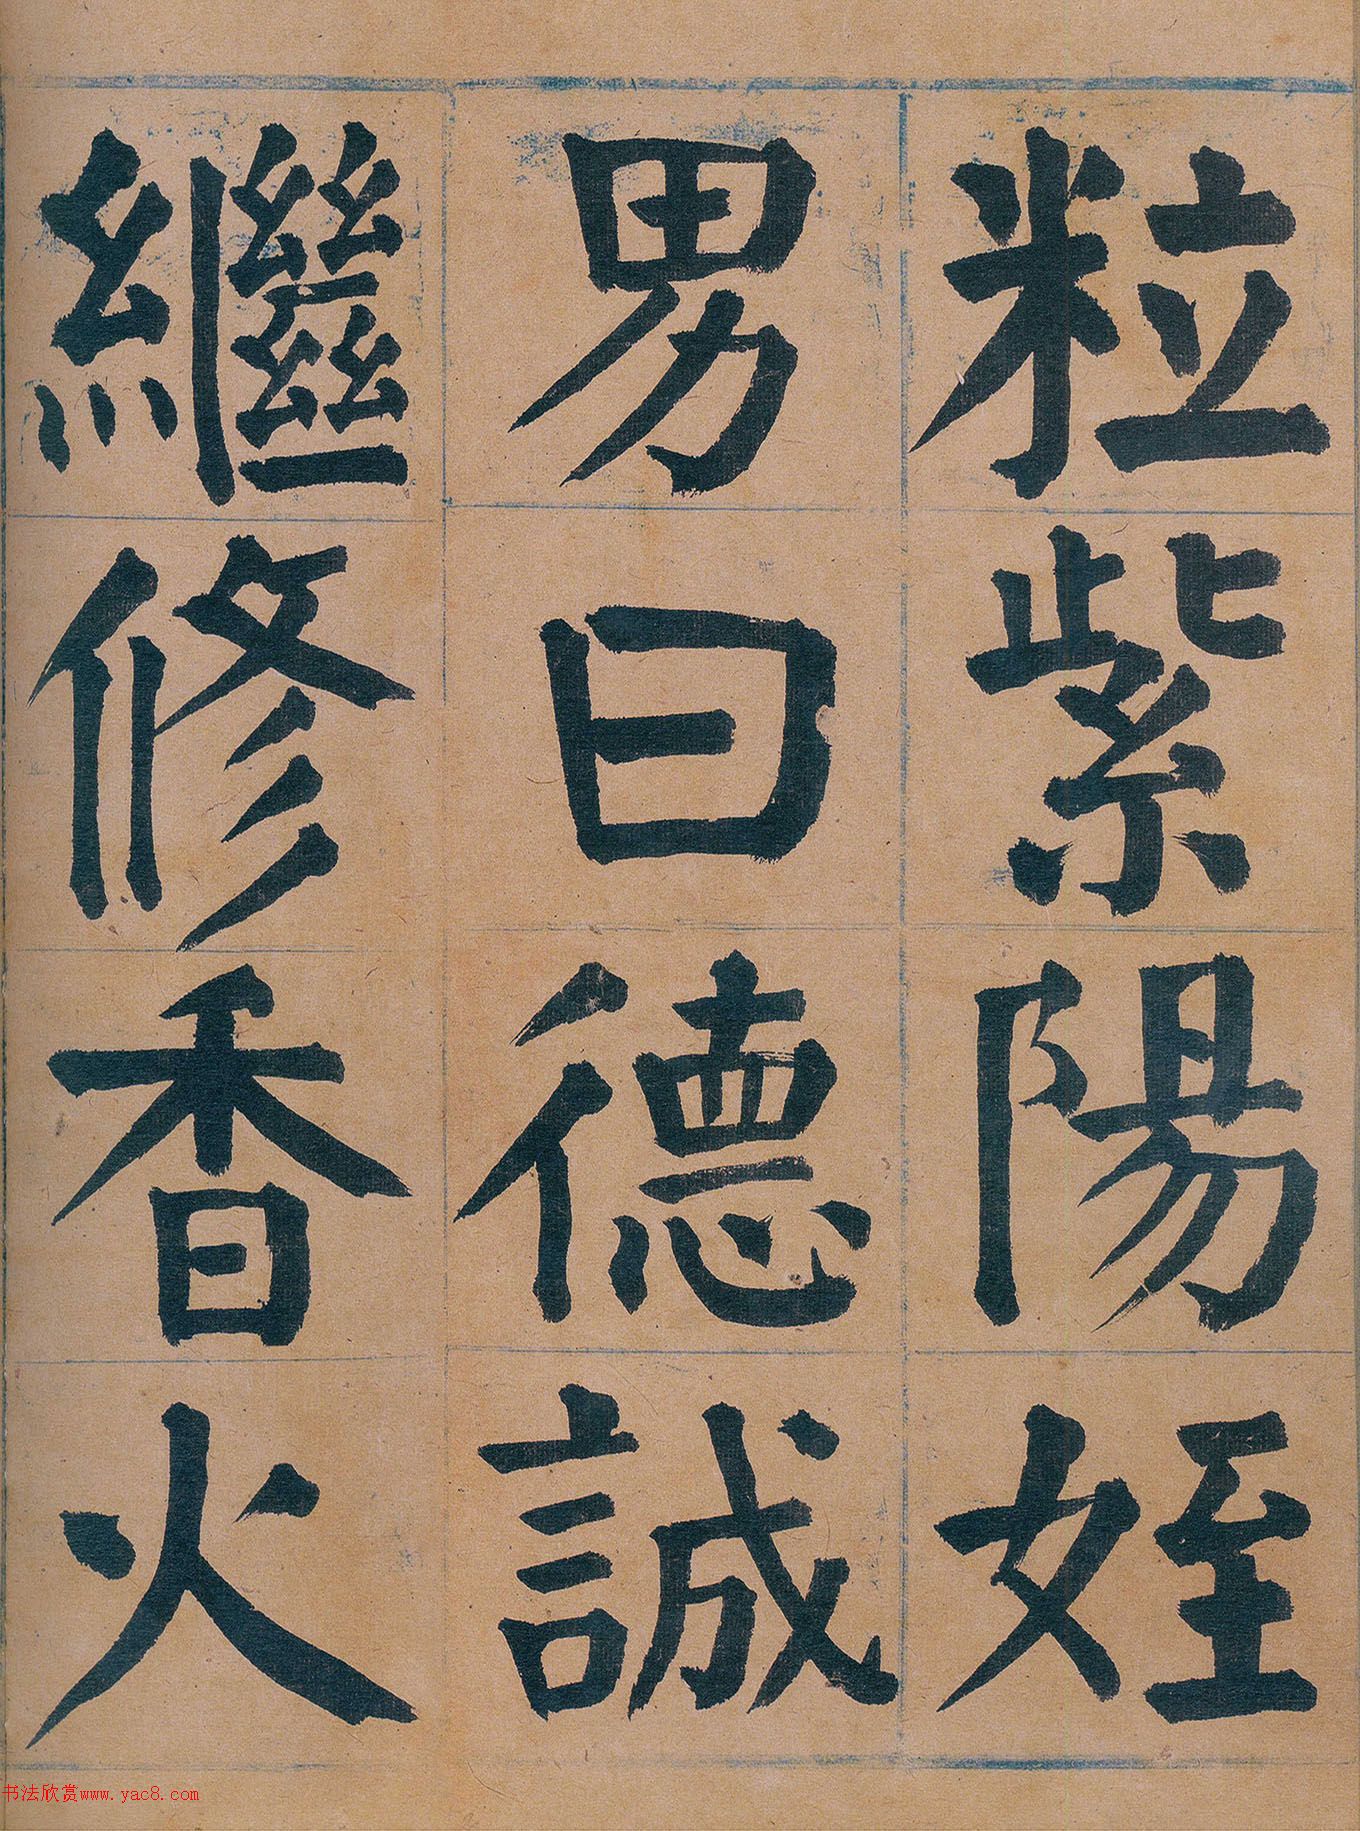 粒紫陽姪
男曰德誠
繼修香火
书法欣赏www.yac8.com